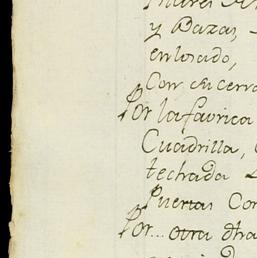 y Bazas
enlosado,
Con su cerra
Por la favrica
Cuadrilla,
techrada
Puertas Con
Por... otra dha